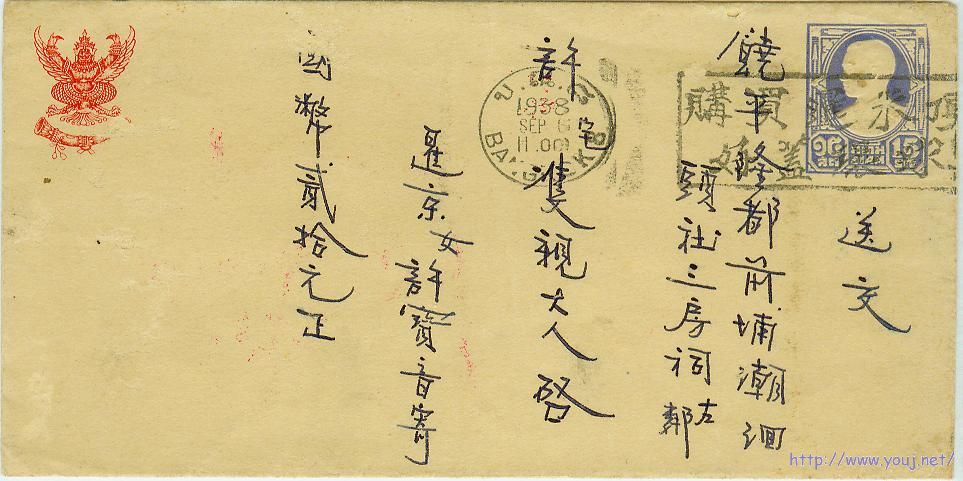 送交
饒平隆都前埔潮迴
頭社三房祠左鄰
許宅雙親大人啓
暹京女許寶音寄
國幣貳拾元正
1938
SEP 6
BANGKOK
購買
http://www.youj.net/